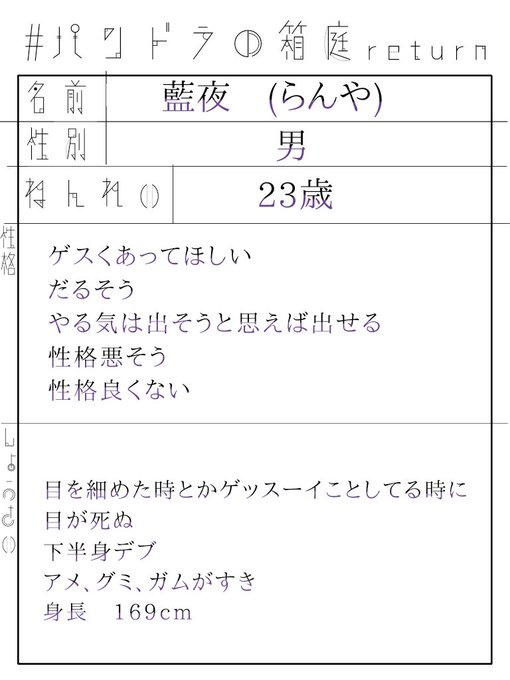 #パンドラの箱庭return
名前 藍夜 (らんや)
性別 男
ねんれい 23歳
性格
ゲスくあってほしい
だるそう
やる気は出そうと思えば出せる
性格悪そう
性格良くない
しょうさい
目を細めた時とかゲッスーイことしてる時に
目が死ぬ
下半身デブ
アメ、グミ、ガムがすき
身長 169cm